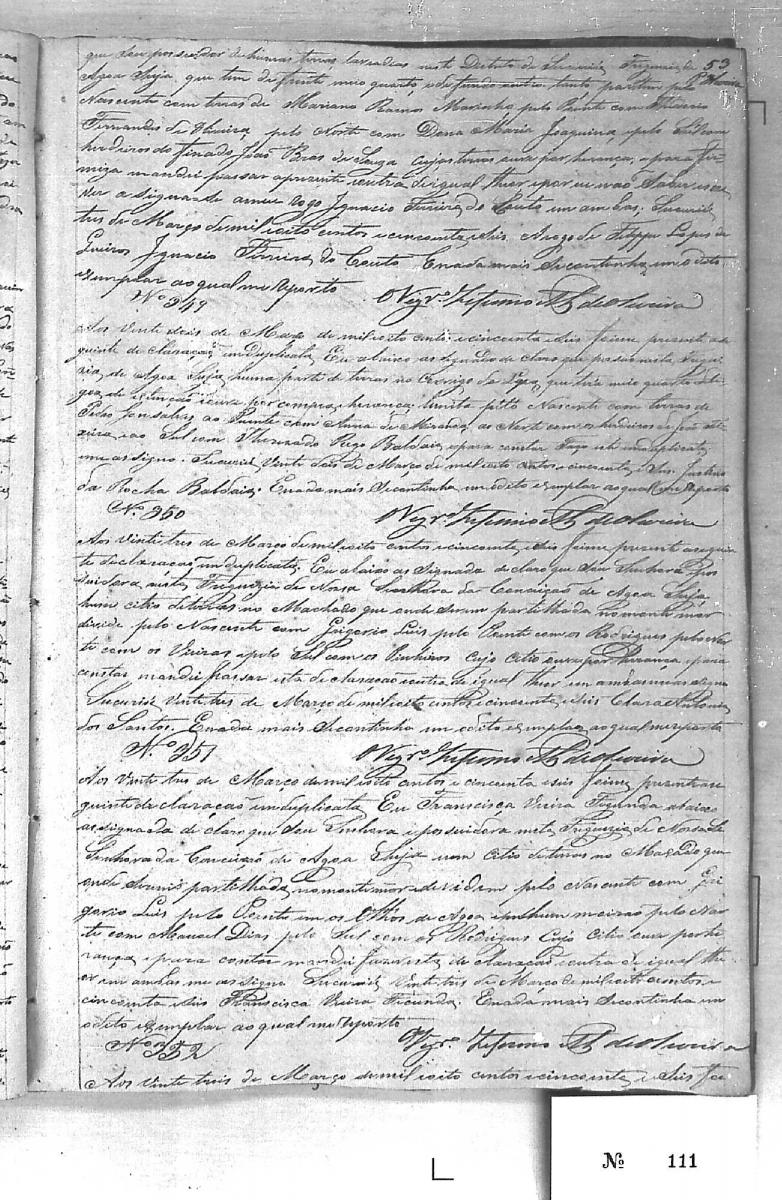 que sou possuidor de humas terras lavradias neste Destricto de Sucuriú, Freguezia de 53
Agoa Suja, que tem de frente meio quarto e de fundo outro tanto partem pelo Pereira
Nascente com terras de Mariano Ramos Marinho pelo Poente com
Fernandes de Oliveira, pelo Norte com Dona Maria Joaquina, e pelo Sul com
herdeiros do finado João Bras de Souza cujas terras ouve por herança, e para fir-
miza mandei passar a prezente e outra de igual theor e por eu não saber escre
ver a signa de a meu rogo Ignacio Ferreira do Couto em ambas. Sucuriú
tres de Março de mil oito centos e cincoenta e seis. A rogo de Felippe Lopes de
Queiros Ignacio Ferreira do Couto. E nada mais se continha em o dito
exemplar ao qual me reporto
Nº 349 O Vigrº de Oliveira
Aos vinte dois de Março de mil oito centos e cincoenta e seis foime prezente a se
guinte declaração em duplicata, Eu abaixo assignado declaro que possuo nesta Fregue
zia de Agoa Suja huma parte de terras no Corrigo da que terá meio quarto de le
goa de extenção ouve por compra, herança: limita pelo Nascente com terras de
Pedro Gonsalves ao Poente com Anna de Miranda, ao Norte com os herdeiros de João
e ao Sul com Rego Baldaia, e para constar faço esta em duplicata,
me assigno. Sucuriú Vinte dois de Março de mil oito centos e cincoenta e seis. Justino
da Rocha Baldaia. E nada mais se continha em o dito exemplar ao qual me reporto
Nº 350 O Vigrº de Oliveira
Aos Vinte tres de Março de mil oito centos e cincoenta e seis foime prezente a seguin
te declaração em duplicata, Eu abaixo assignada declaro que sou Senhora e pos
suidora nesta Freguezia de Nossa Senhora da Conceição de Agoa Suja
hum citio de terras no Machado que ainda se não partilhada no monte mór
divide pelo Nascente com Grigorio Luis, pelo Poente com os Rodrigues pelo Nor
te com os Vieiras e pelo Sul com os Pinheiros Cujo Citio ouve por Herança, e para
constar mandei passar esta declaração e outra de igual theor em ambas me assigno
Sucuriú Vinte tres de Março de mil oito centos e cincoenta e seis Clara Antonia
dos Santos. E nada mais se continha em o dito exemplar ao qual me reporto
Nº 351 O Vigrº de Oliveira
Aos Vinte tres de Março de mil oito centos e cincoenta e seis foime prezente a se
guinte declaração em duplicata Eu Francisca Vieira Fegunda abaixo
assignada declaro que sou Senhora e possuidora nesta Freguezia de Nossa
Senhora da Conceição de Agoa Suja um Citio de terras no Maçado que
ainda se não partilhada no monte mór devidem pelo Nascente com Gri
gorio Luis pelo Poente em os Olhos de Agoa e pelo Nor
te com Manoel Dias, pelo Sul com os Rodrigues Cujo Citio ouve por he
rança, e para constar mandei fazer esta declaração e outra de igual the
or em ambas me assigno Sucuriú Vinte tres de Março de mil oito centos e
cincoenta e seis Francisca Vieira Fecunda. E nada mais se continha em
o dito exemplar ao qual me reporto
Nº 352 O Vigrº de Oliveira
Aos Vinte tres de Março de mil oito centos e cincoenta e seis foi
Nº 111